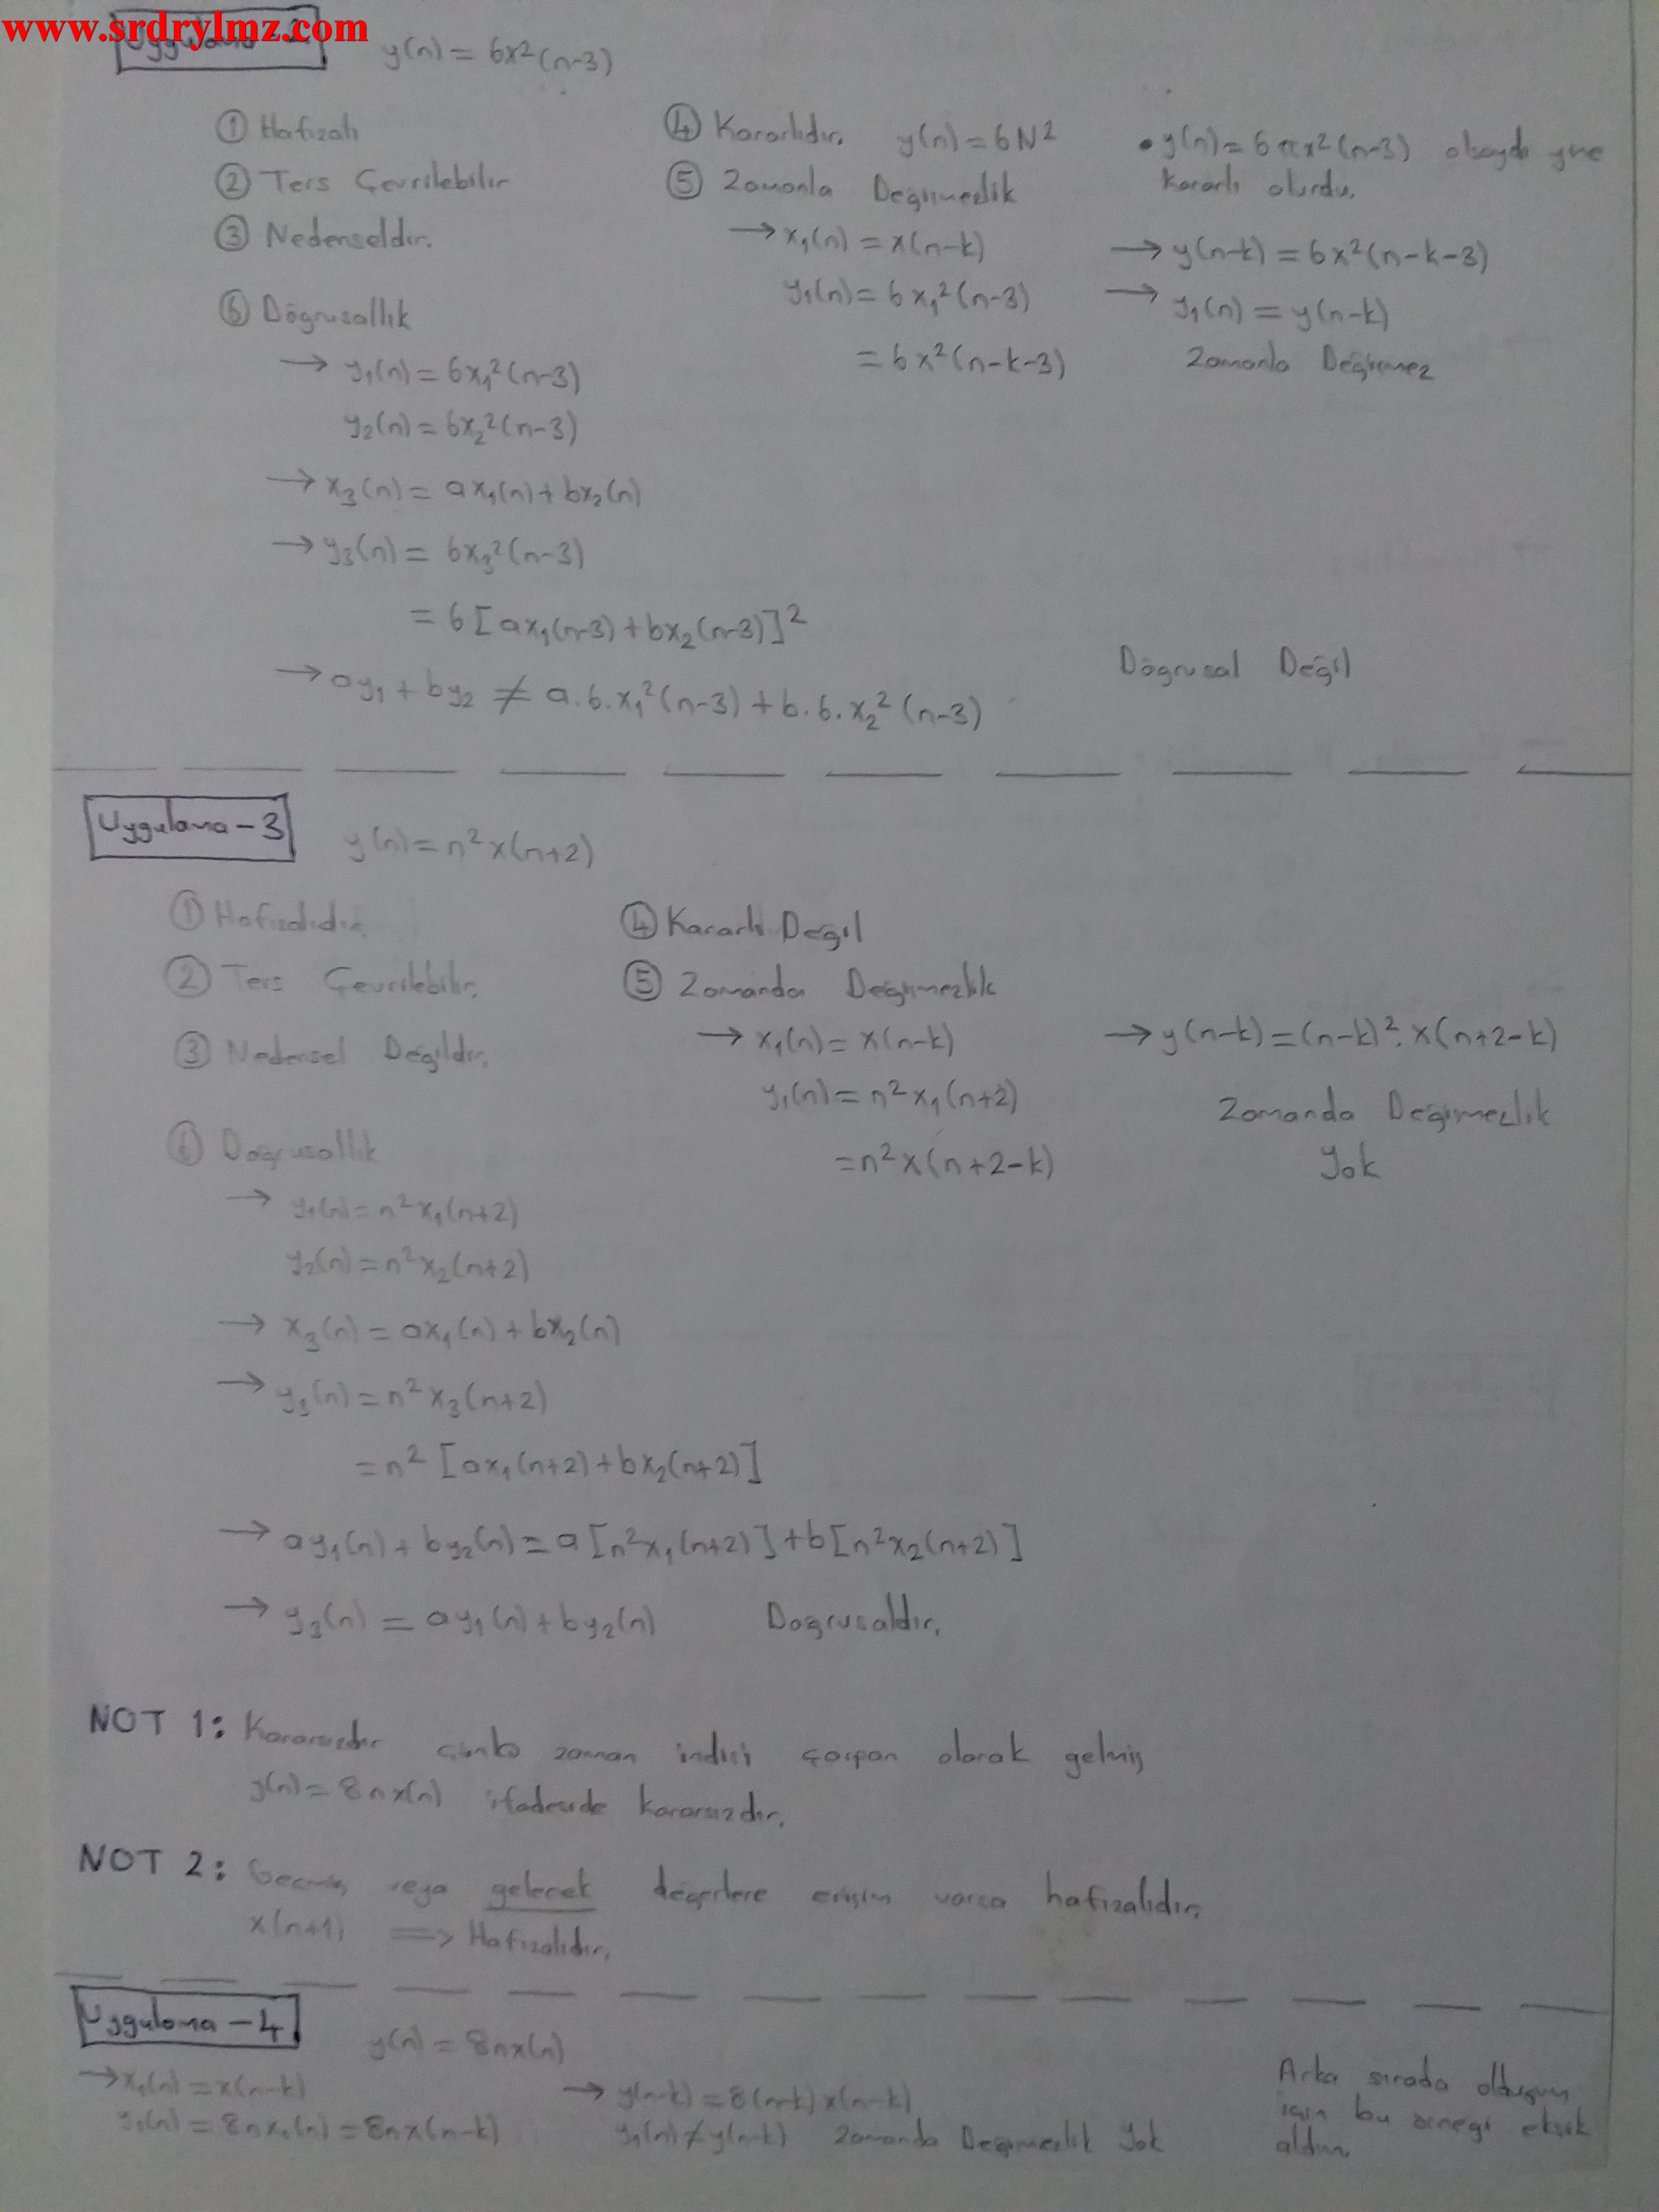 www.srdrylmz.com
Uygulama-2 y(n) = 6x²(n-3)
① Hafızalı
② Ters Çevrilebilir
③ Nedenseldir.
④ Kararlıdır. y(n) = 6N²
• y(n) = 6πx²(n-3) olsaydı yine
kararlı olurdu.
⑤ Zamanla Değişmezlik
→ x₁(n) = x(n-k)
y₁(n) = 6x₁²(n-3)
= 6x²(n-k-3)
→ y(n-k) = 6x²(n-k-3)
→ y₁(n) = y(n-k)
Zamanla Değişmez
⑥ Doğrusallık
→ y₁(n) = 6x₁²(n-3)
y₂(n) = 6x₂²(n-3)
→ x₃(n) = ax₁(n) + bx₂(n)
→ y₃(n) = 6x₃²(n-3)
= 6[ax₁(n-3) + bx₂(n-3)]²
→ ay₁ + by₂ ≠ a.6.x₁²(n-3) + b.6.x₂²(n-3)
Doğrusal Değil
Uygulama-3 y(n) = n²x(n+2)
① Hafızalıdır.
② Ters Çevrilebilir.
③ Nedensel Değildir.
④ Kararlı Değil
⑤ Zamanda Değişmezlik
→ x₁(n) = x(n-k)
y₁(n) = n²x₁(n+2)
= n²x(n+2-k)
→ y(n-k) = (n-k)².x(n+2-k)
Zamanda Değişmezlik
Yok
⑥ Doğrusallık
→ y₁(n) = n²x₁(n+2)
y₂(n) = n²x₂(n+2)
→ x₃(n) = ax₁(n) + bx₂(n)
→ y₃(n) = n²x₃(n+2)
= n²[ax₁(n+2) + bx₂(n+2)]
→ ay₁(n) + by₂(n) = a[n²x₁(n+2)] + b[n²x₂(n+2)]
→ y₃(n) = ay₁(n) + by₂(n) Doğrusaldır.
NOT 1: Kararsızdır çünkü zaman indisi çarpan olarak gelmiş
y(n) = 8nx(n) ifadeside kararsızdır.
NOT 2: Geçmiş veya gelecek değerlere erişim varsa hafızalıdır.
x(n+1) ⟹ Hafızalıdır.
Uygulama-4 y(n) = 8nx(n)
→ x₁(n) = x(n-k)
y₁(n) = 8nx₁(n) = 8nx(n-k)
→ y(n-k) = 8(n-k)x(n-k)
y₁(n) ≠ y(n-k) Zamanda Değişmezlik Yok
Arka sırada olduğum
için bu örneği eksik
aldım.